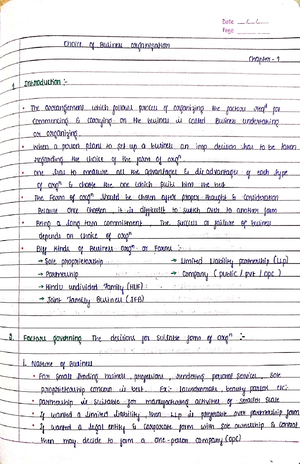 Date
Page
Choice of Business organisation
Chapter - 1
1. Introduction :-
• The arrangement which follows process of organizing the factors req^d for
commencing & carrying on the business is called Business undertaking
or organizing.
• When a person plans to set up a business an imp decision has to be taken
regarding the choice of the form of org^n.
• One has to measure all the advantages & disadvantages of each type
of org^n & choose the one which suits him the best.
• The Form of org^n should be chosen after proper thought & consideration
Because once chosen, it is difficult to switch over to another form
• Being a long term commitment, The success or failure of business
depends on choice of org^n
• Kinds of Business org^n or Forms :-
→ Sole proprietorship → Limited liability partnership (LLP)
→ Partnership → Company (public / pvt / opc)
→ Hindu undivided Family (HUF)
→ Joint Family Business (JFB)
2. Factors governing The decisions for suitable form of org^n :-
1. Nature of Business
• For Small trading business, professions, rendering personal services, sole
proprietorship concern is best. Ex:- beauty parlor etc.
• Partnership is suitable for manufacturing activities of smaller scale
• If wanted a Limited liability, then LLP is preferable over partnership form
• If wanted a legal entity & corporate form with sole ownership & control
then may decide to form a one-person company (opc)